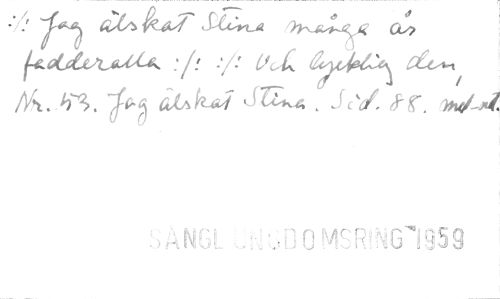 :/: Jag älskat Stina många år
fadderalla :/: :/: Och lycklig den,
Nr. 53. Jag älskat Stina. Sid. 88. mel-not.
SÅNGL UNGDOMSRING 1959